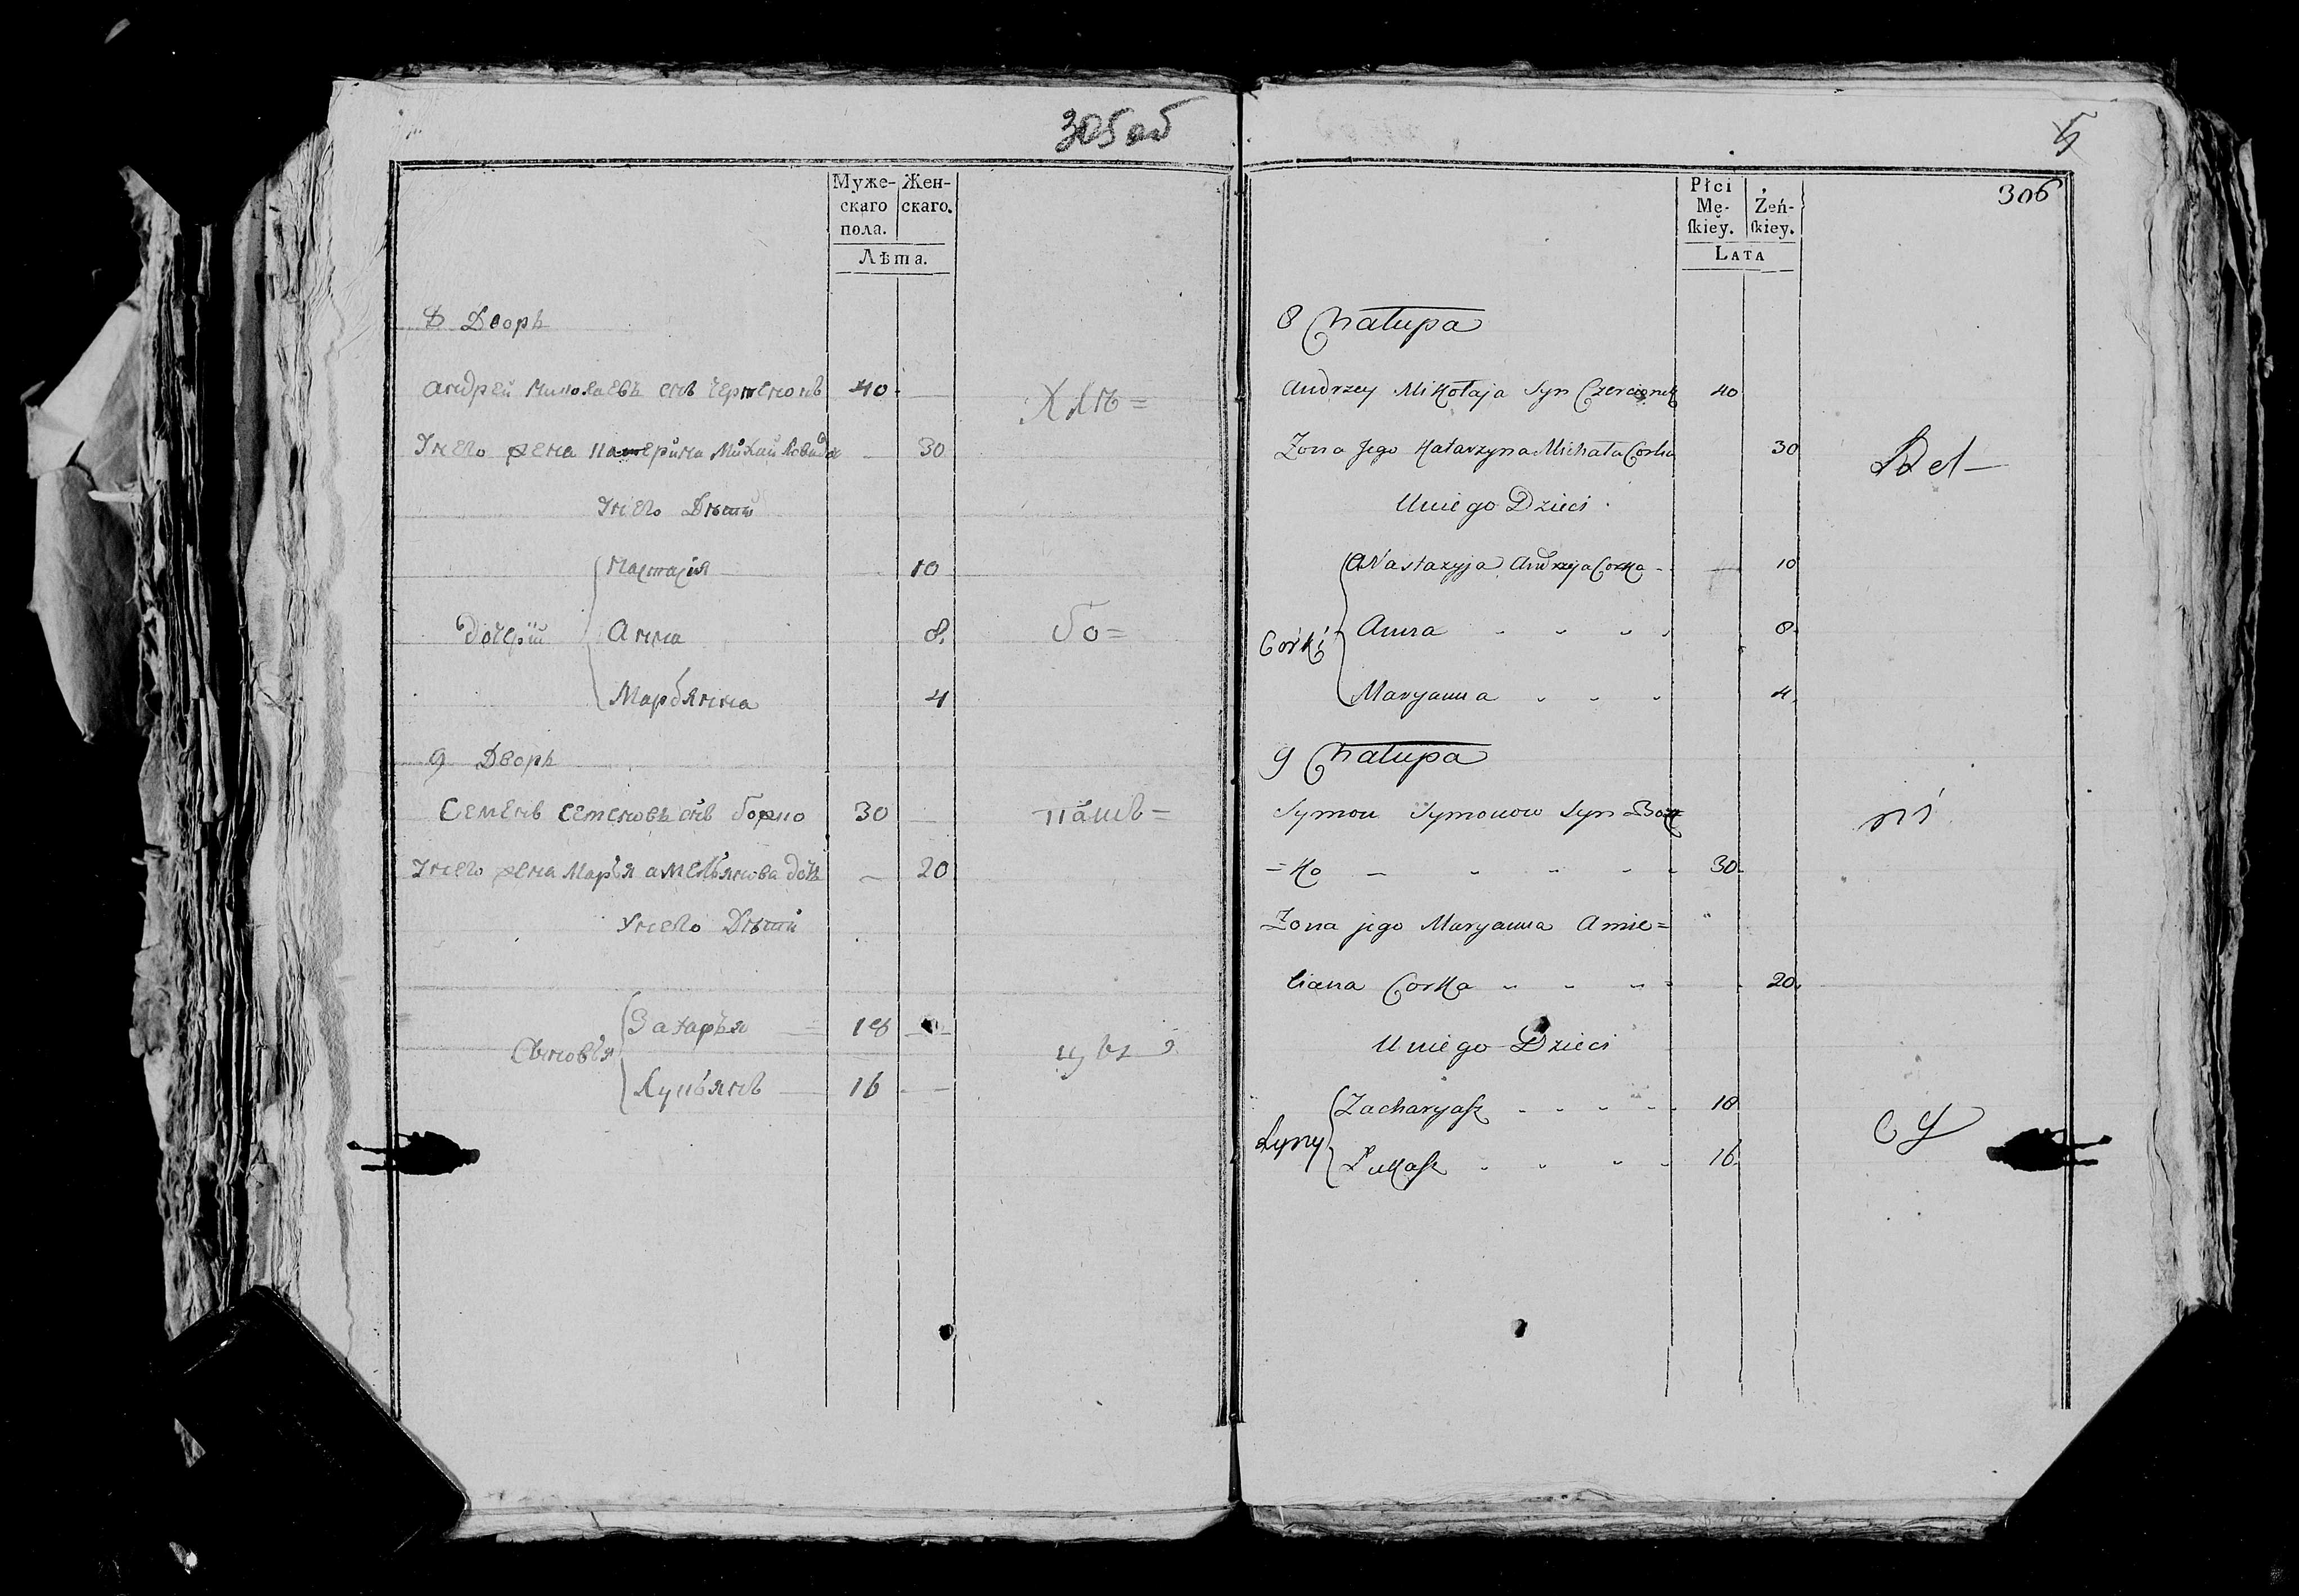 305 об
Муже-
скаго
пола.
Жен-
скаго.
Лѣта.
8 Дворъ
Андрей Миколаевъ снъ Чертенокъ 40 —
У него жена Катерина Михайлова до 30
У него Дѣти
Дочери
Настасія 10
Анна 8.
Марьянна 4
9 Дворъ
Семенъ Семеновъ снъ Божко 30 —
У него жена Марья Амельянова дочь — 20
У него Дѣти
Сыновья
Захарья 18
Лукьянъ 16 —
бо=
5
306
Płci
Mę-
ſkiey.
Żeń-
ſkiey.
LATA
8 Chałupa
Andrzey Mikołaja Syn 40
Zona Jego Katarzyna Michała Corka 30
U niego Dzieci
Corki
Nastazyja Andrzeja Corka - — 10
Anna 8.
Maryanna 4.
9 Chałupa
Symon Symonow Syn Boż
=ko — 30.
Zona jego Maryanna Amie=
liana Corka 20.
U niego Dzieci
Syny
Zacharyaſz 18
Łukaſz 16.